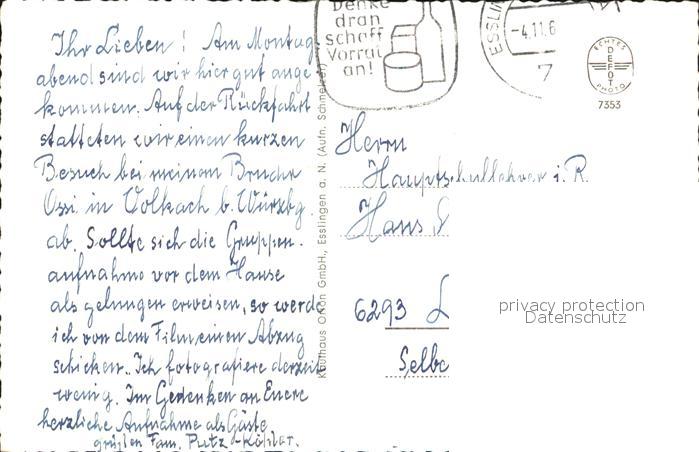 Ihr Lieben! Am Montag
abend sind wir hier gut ange
kommen. Auf der Rückfahrt
statteten wir einen kurzen
Besuch bei meinem Bruder
Ossi in Volkach b. Würzbg.
ab. Sollte sich die Gruppen-
aufnahme vor dem Hause
als gelungen erweisen, so werde
ich von dem Film einen Abzug
schicken. Ich fotografiere derzeit
wenig. Im Gedenken an Euere
herzliche Aufnahme als Gäste
grüßen Fam. Putz-Köhler.
Kaufhaus Orion GmbH., Esslingen a. N. (Aufn. Schneider)
Denke
dran
schaff
Vorrat
an!
ESSLIN
-4.11.6
7
ECHTES
DEFOT
PHOTO
7353
Herrn
Hauptschullehrer i. R.
Hans
6293 L
Selbe
privacy protection
Datenschutz